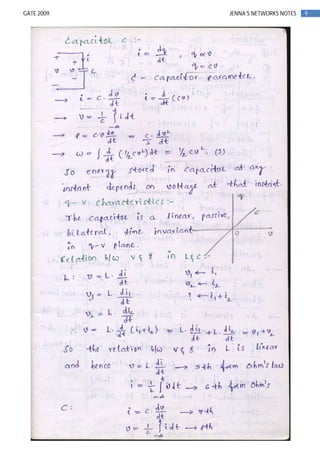 GATE 2009
JENNA'S NETWORKS NOTES 9
Capacitor C :-
i = dq/dt , q ∝ v
q = cv
+ i
v v C
c - capacitor parameter.
→ i = c. dv/dt i = d/dt (cv)
→ v = 1/c ∫_{-∞}^{t} i dt
→ P = cv dv/dt = c/2 . dv²/dt
→ ω = ∫ d/dt (½cv²) dt = ½ cv². (J)
So energy stored in capacitor at any
instant depends on voltage at that instant.
q - v characteristics :-
The capacitor is a linear, passive,
bilateral, time invariant
in q-v plane.
q
c
0 v
Relation b/w v & i in L & C :-
L : v = L. di/dt v₁ ← i₁
v₁ = L. di₁/dt v₂ ← i₂
v₂ = L. di₂/dt ? ← i₁+i₂
∴ v = L. d/dt (i₁+i₂) = L. di₁/dt + L. di₂/dt = v₁+v₂
So the relation b/w v & i in L is linear
and hence v = L. di/dt → 5th form Ohm's law
i = 1/L ∫_{-∞}^{t} v dt → 6th form Ohm's
C : i = c. dv/dt → 7th
v = 1/c ∫_{-∞}^{t} i dt → 8th